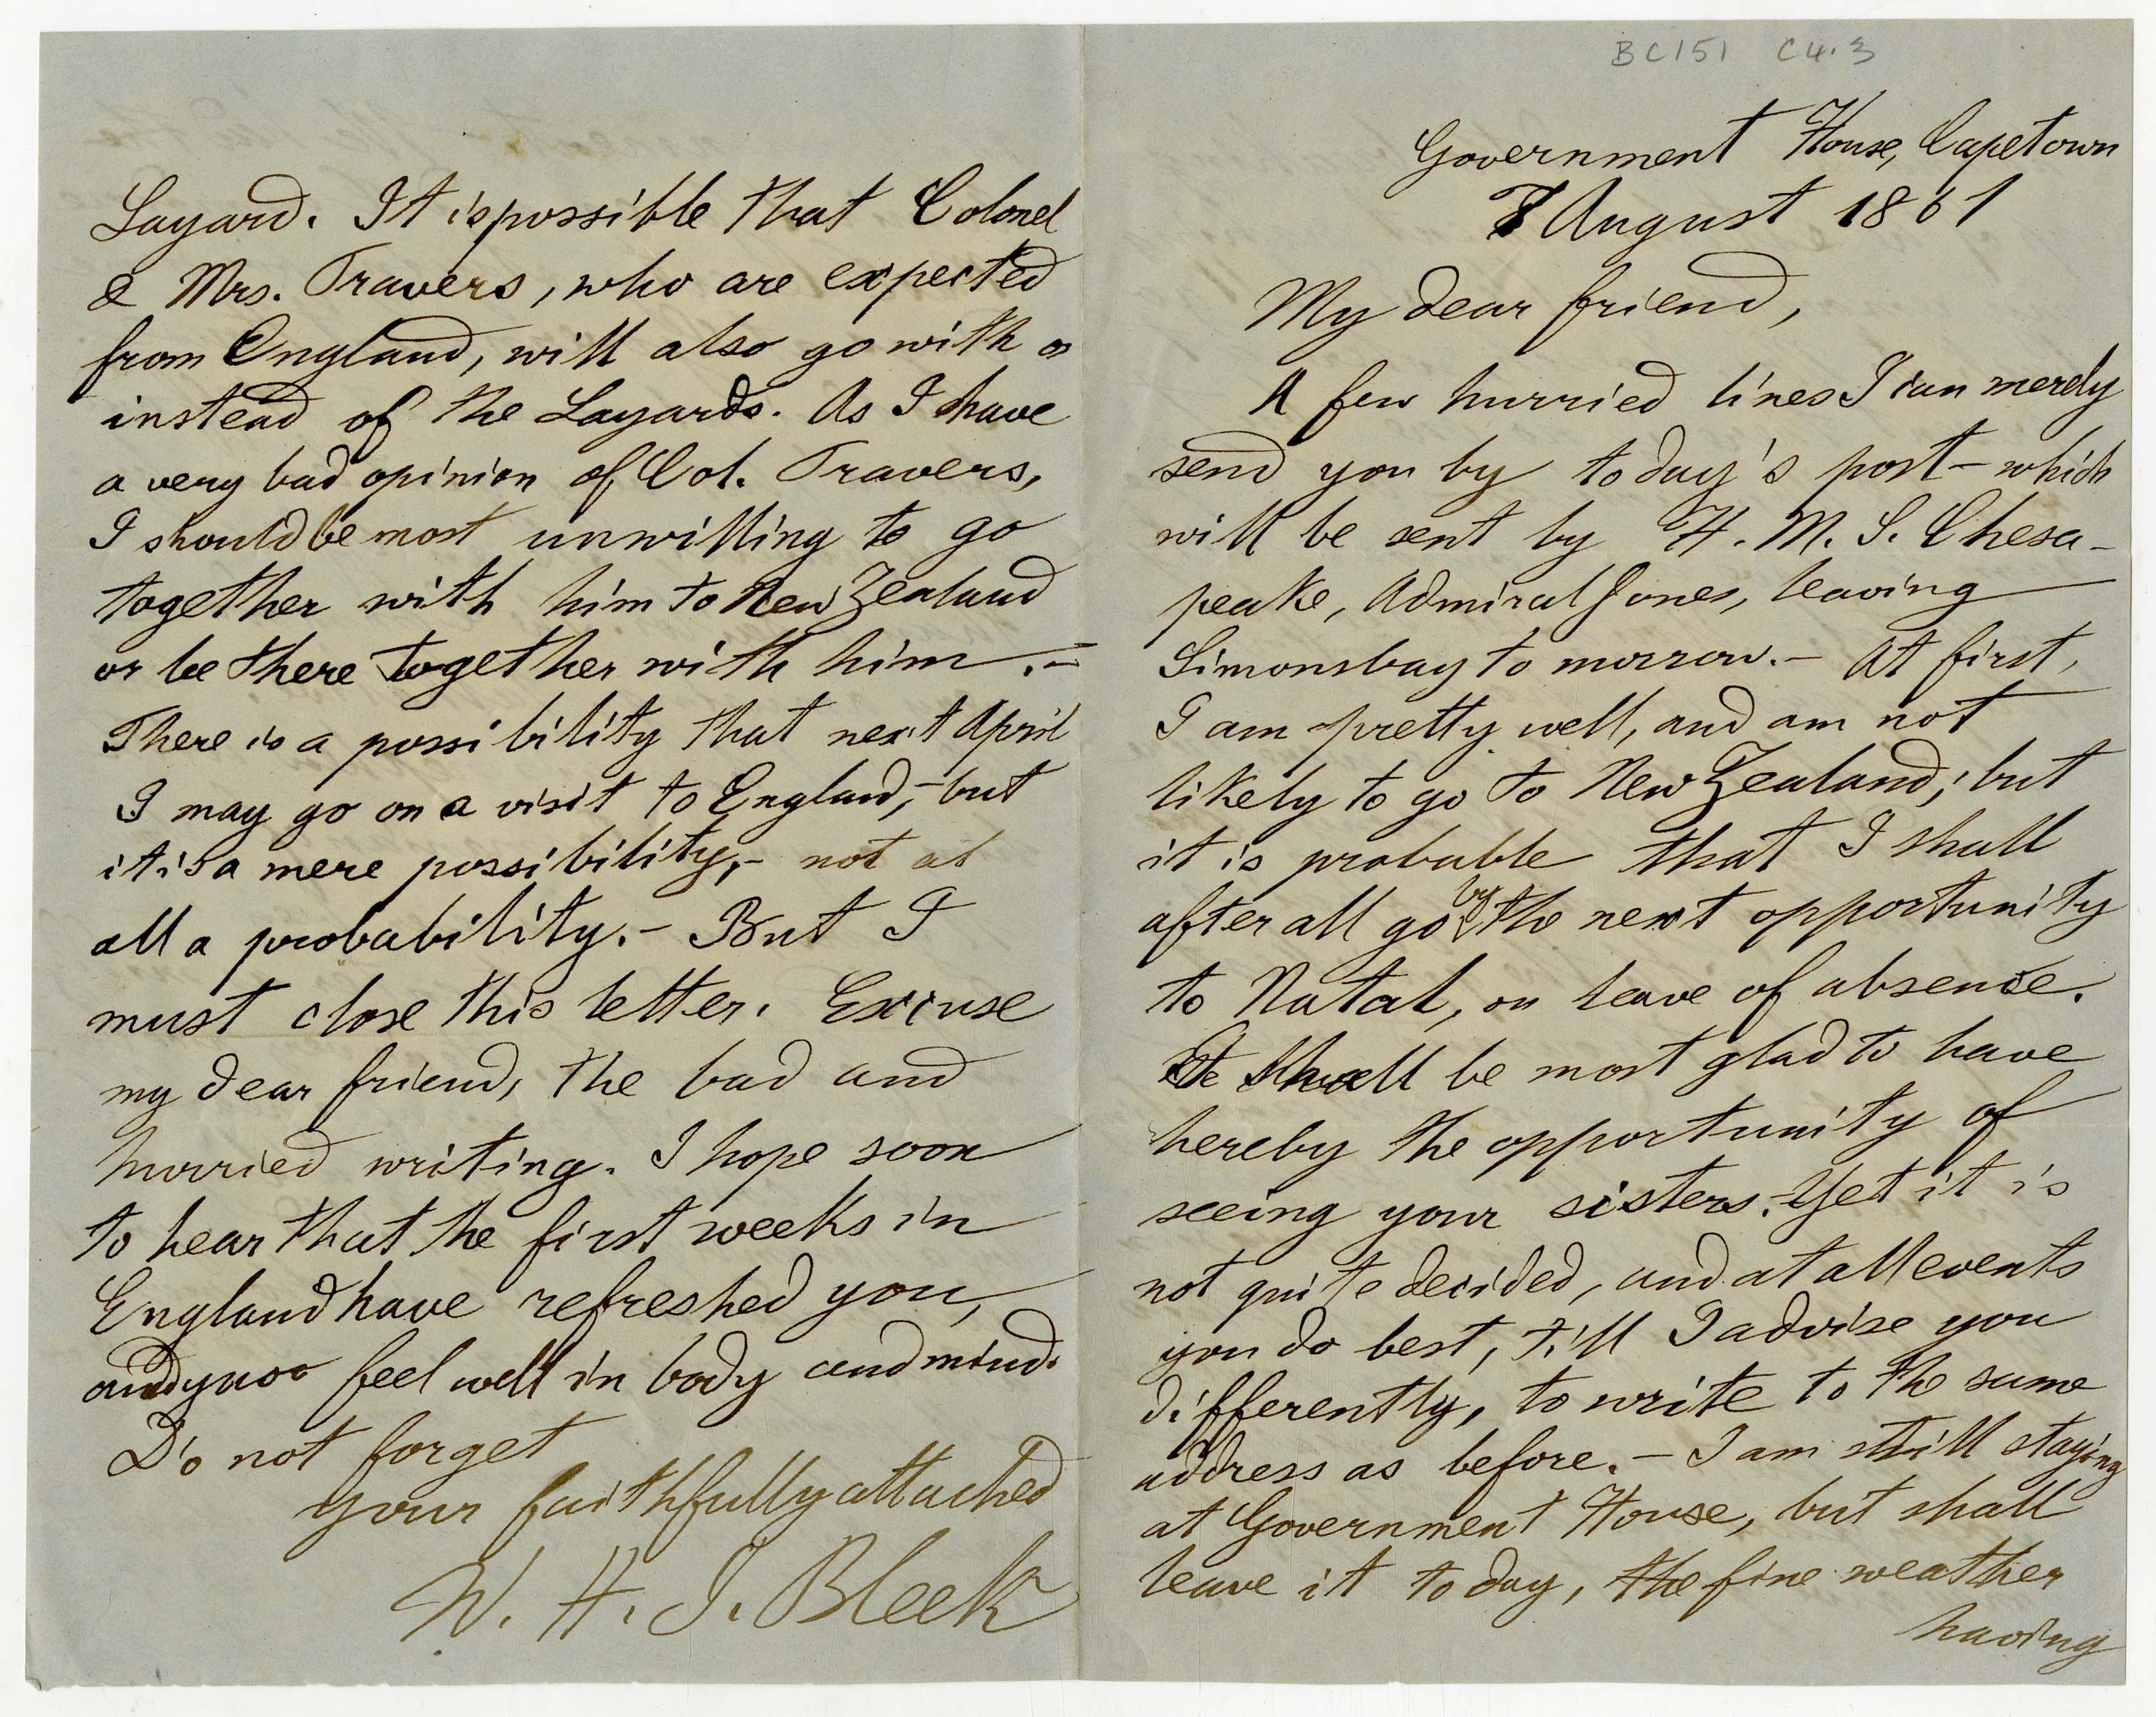 BC151 C4.3
Government House, Capetown
8 August 1861
My dear friend,
A few hurried lines I can merely
send you by to day's post – which
will be sent by H. M. S. Chesa-
peake, Admiral Jones, leaving
Simonsbay to morrow. – At first,
I am pretty well, and am not
likely to go to New Zealand; but
it is probable that I shall
after all go by the next opportunity
to Natal, on leave of absence.
I shall be most glad to have
hereby the opportunity of
seeing your sisters. Yet it is
not quite decided, and at all events
you do best, till I advise you
differently, to write to the same
address as before. – I am still staying
at Government House, but shall
leave it to day, the fine weather
having
Layard. It is possible that Colonel
& Mrs. Travers, who are expected
from England, will also go with or
instead of the Layards. As I have
a very bad opinion of Col. Travers,
I should be most unwilling to go
together with him to New Zealand
or be there together with him. –
There is a possibility that next April
I may go on a visit to England, – but
it is a mere possibility, – not at
all a probability. – But I
must close this letter. Excuse
my dear friend, the bad and
hurried writing. I hope soon
to hear that the first weeks in
England have refreshed you,
and you feel well in body and mind.
Do not forget
your faithfully attached
W. H. I. Bleek